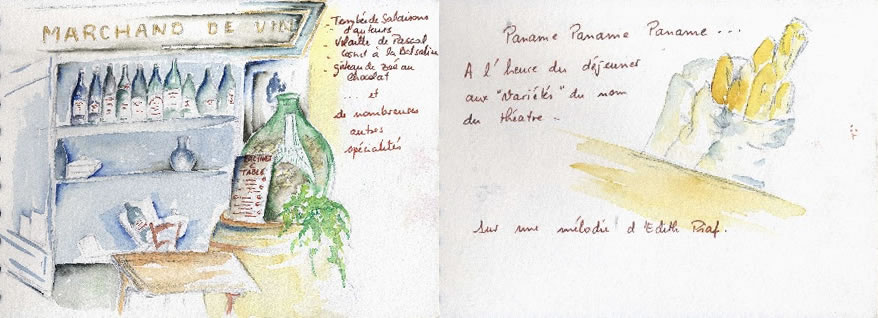 MARCHAND DE VIN
- Tombée de Salaisons
d'auteurs
Volaille de Pascal
Cosnet à la Balsamine
- gâteau de Zoé au
Chocolat
... et
de nombreuses
autres
spécialités
RACINES
TABLE
Paname Paname Paname ...
A l'heure du déjeuner
aux "Variétés" du nom
du théatre -
Sur une mélodie d'Edith Piaf.